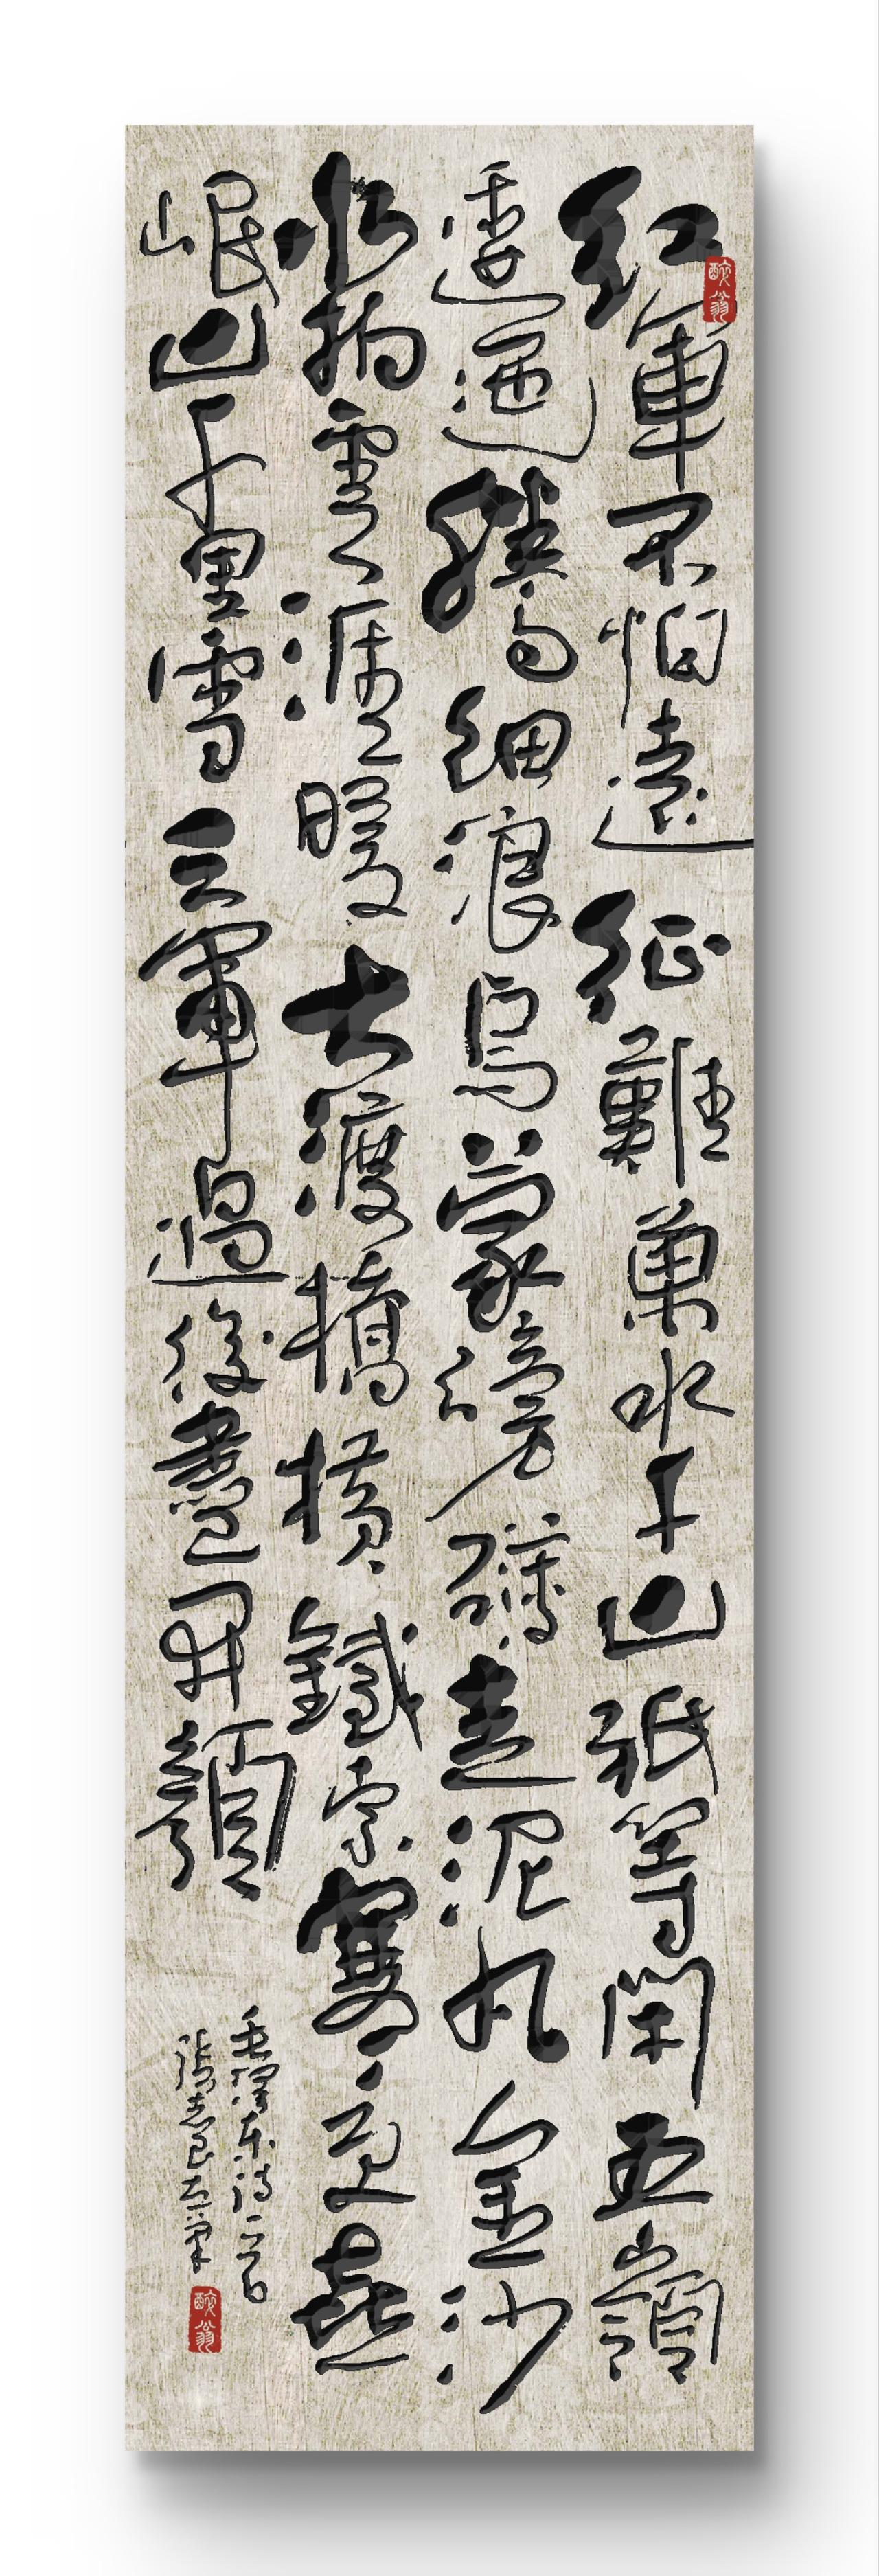 醉翁
紅軍不怕遠征難萬水千山祇等閑五嶺
逶迤騰細浪烏蒙磅礴走泥丸金沙
水拍雲涯暖大渡橋橫鐵索寒更喜
岷山千里雪三軍過後盡開顏
毛澤東詩一首
張志良
醉翁